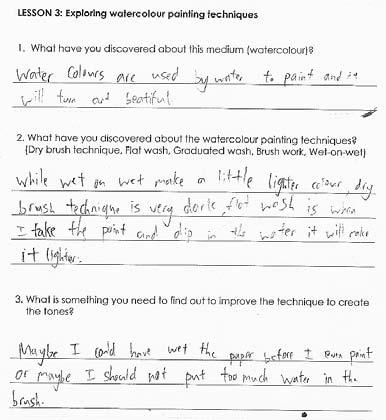 LESSON 3: Exploring watercolour painting techniques
1. What have you discovered about this medium (watercolour)?
Water Colours are used by water to paint and it
will turn out beatiful
2. What have you discovered about the watercolour painting techniques?
(Dry brush technique, Flat wash, Graduated wash, Brush work, Wet-on-wet)
while wet on wet make a little lighter colour, dry
brush technique is very darke, flat wash is when
I take the paint and dip in the water it will make
it lighter.
3. What is something you need to find out to improve the technique to create
the tones?
Maybe I could have wet the paper before I even paint
or maybe I should not put too much water in the
brush.